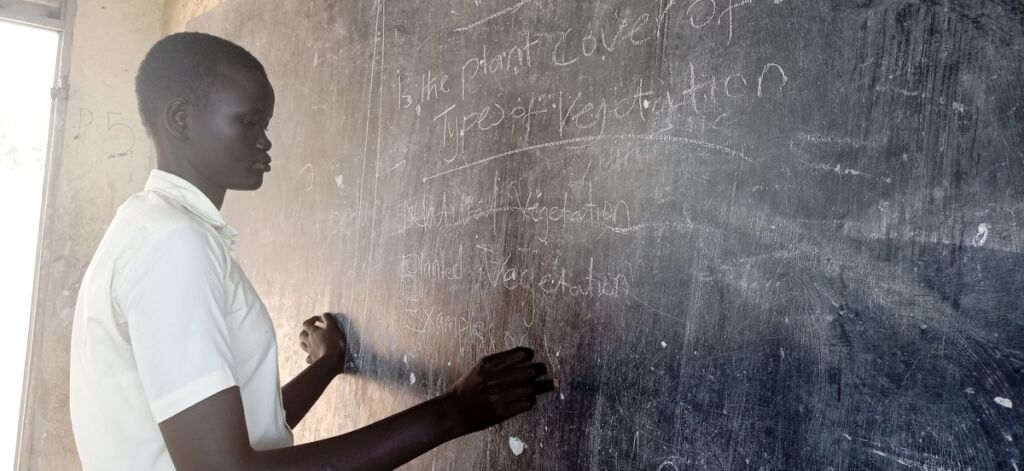 P5
is the plant cover of
Types of Vegetation
Natural Vegetation
Planted Vegetation
Examples